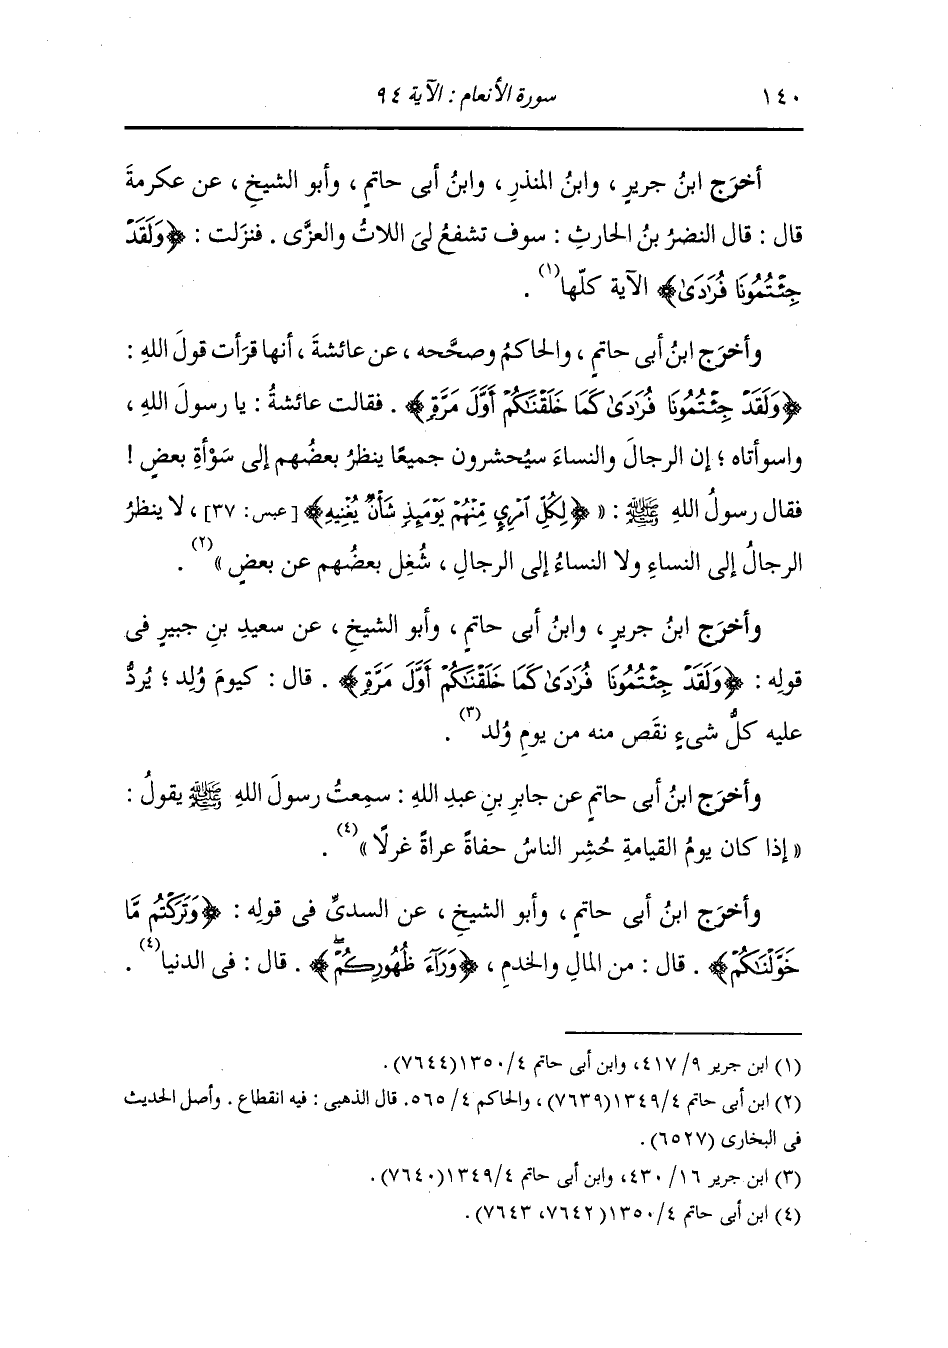 ١٤٠ سورة الأنعام : الآية ٩٤
أخرَج ابنُ جريرٍ ، وابنُ المنذرِ ، وابنُ أبى حاتمٍ ، وأبو الشيخِ ، عن عكرمةَ
قال : قال النضرُ بنُ الحارثِ : سوف تشفعُ لىَ اللاتُ والعزَّى . فنزَلت : ﴿وَلَقَدْ
جِئْتُمُونَا فُرَٰدَىٰ﴾ الآية كلّها(١) .
وأخرَج ابنُ أبى حاتمٍ ، والحاكمُ وصحَّحه ، عن عائشةَ ، أنها قرَأت قولَ اللهِ :
﴿وَلَقَدْ جِئْتُمُونَا فُرَٰدَىٰ كَمَا خَلَقْنَٰكُمْ أَوَّلَ مَرَّةٍ﴾ . فقالت عائشةُ : يا رسولَ اللهِ ،
واسوأتاه ؛ إن الرجالَ والنساءَ سيُحشرون جميعًا ينظرُ بعضُهم إلى سَوْأةِ بعضٍ !
فقال رسولُ اللهِ ﷺ : « ﴿لِكُلِّ ٱمْرِئٍ مِّنْهُمْ يَوْمَئِذٍ شَأْنٌ يُغْنِيهِ﴾ [عبس: ٣٧] ، لا ينظرُ
الرجالُ إلى النساءِ ولا النساءُ إلى الرجالِ ، شُغِل بعضُهم عن بعضٍ »(٢) .
وأخرَج ابنُ جريرٍ ، وابنُ أبى حاتمٍ ، وأبو الشيخِ ، عن سعيدِ بنِ جبيرٍ فى
قولِه : ﴿وَلَقَدْ جِئْتُمُونَا فُرَٰدَىٰ كَمَا خَلَقْنَٰكُمْ أَوَّلَ مَرَّةٍ﴾ . قال : كيومَ وُلِد ؛ يُردُّ
عليه كلُّ شىءٍ نقَص منه من يومِ وُلد(٣) .
وأخرَج ابنُ أبى حاتمٍ عن جابرِ بنِ عبدِ اللهِ : سمِعتُ رسولَ اللهِ ﷺ يقولُ :
« إذا كان يومُ القيامةِ حُشِر الناسُ حفاةً عراةً غرلًا »(٤) .
وأخرَج ابنُ أبى حاتمٍ ، وأبو الشيخِ ، عن السدىِّ فى قولِه : ﴿وَتَرَكْتُم مَّا
خَوَّلْنَٰكُمْ﴾ . قال : من المالِ والخدمِ ، ﴿وَرَآءَ ظُهُورِكُمْ ۖ﴾ . قال : فى الدنيا(٤) .
(١) ابن جرير ٩/ ٤١٧، وابن أبى حاتم ١٣٥٠/٤(٧٦٤٤) .
(٢) ابن أبى حاتم ١٣٤٩/٤(٧٦٣٩) ، والحاكم ٤/ ٥٦٥. قال الذهبى : فيه انقطاع . وأصل الحديث
فى البخارى (٦٥٢٧) .
(٣) ابن جرير ١٦/ ٤٣٠، وابن أبى حاتم ١٣٤٩/٤(٧٦٤٠) .
(٤) ابن أبى حاتم ١٣٥٠/٤( ٧٦٤٢، ٧٦٤٣) .